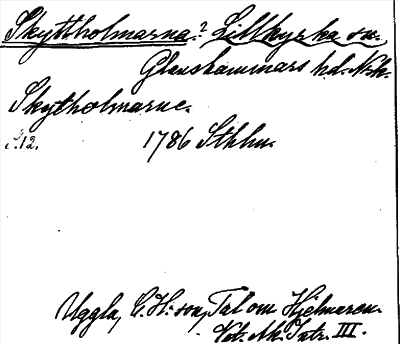 Skyttholmarna? Lillkyrka sn.
Glanshammars hd. Nke.
Skytholmarne.
S. 12. 1786 Sthlm.
Uggla, C. H:son, Tal om Hjelmaren.
Vet. Ak. Intr. III.